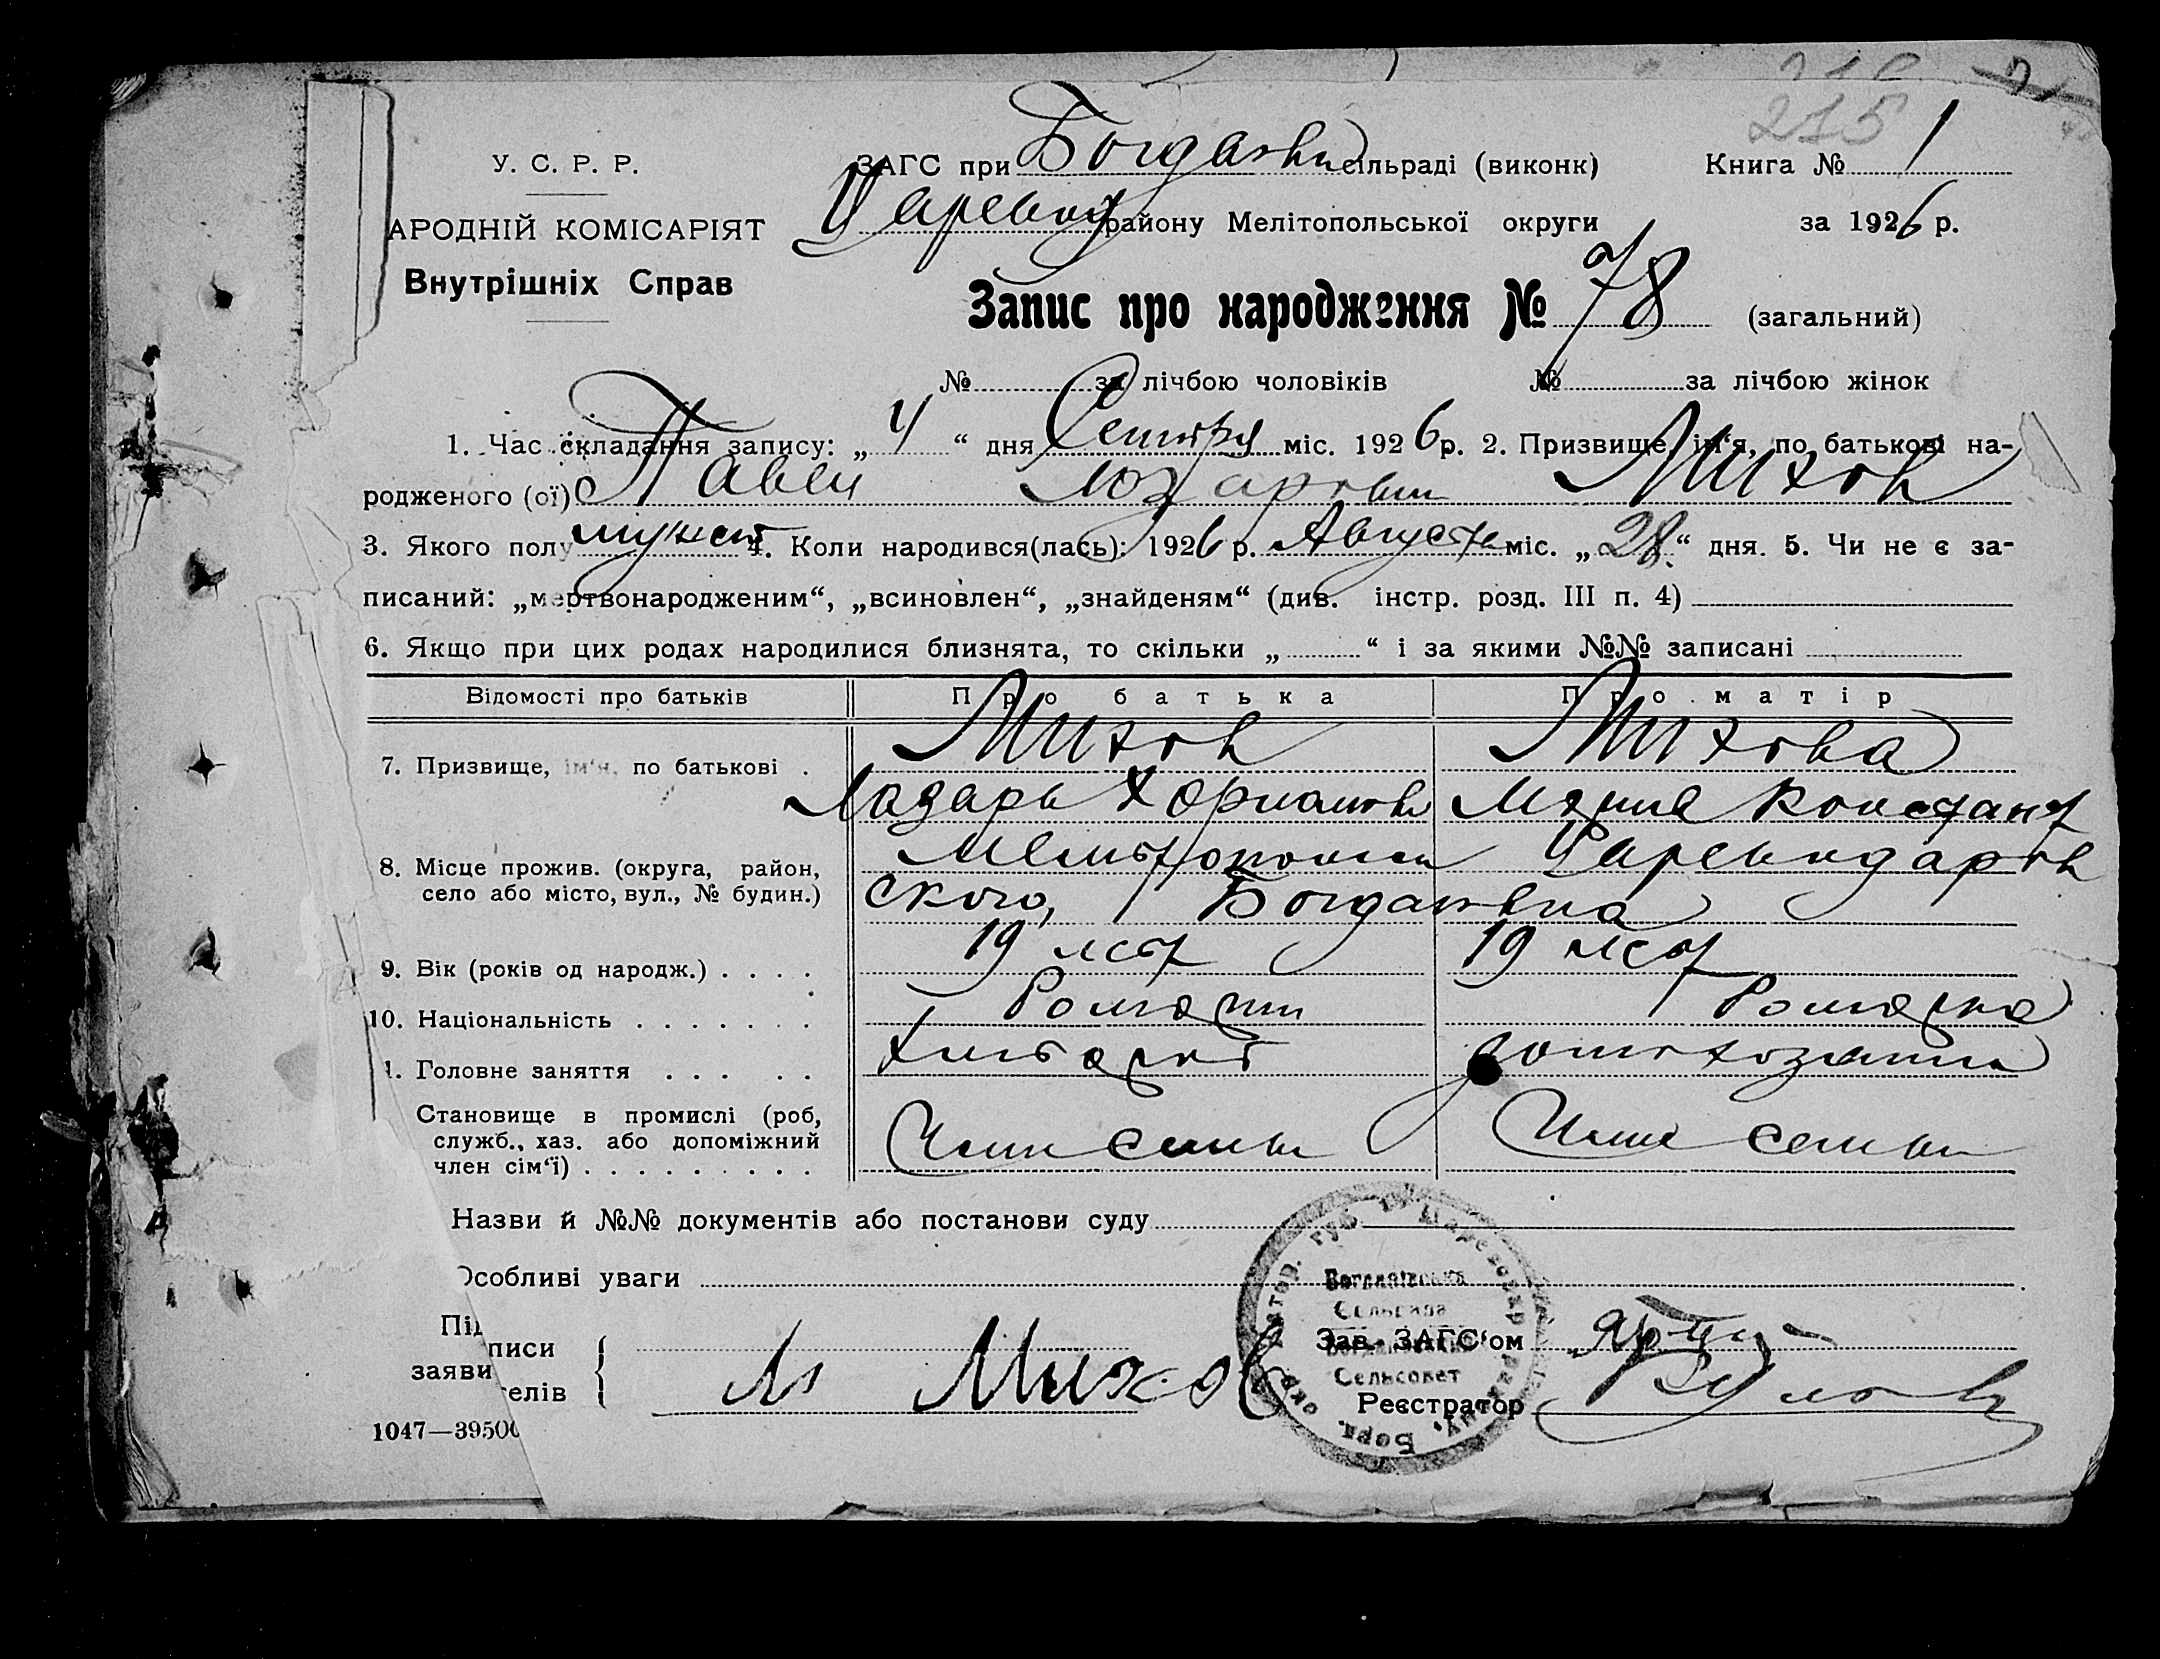 215
У. С. Р. Р.
АРОДНІЙ КОМІСАРІЯТ
Внутрішніх Справ
ЗАГС при Богданов сільраді (виконк) Книга № 1
Царевод району Мелітопольської округи за 1926 р.
Запис про народження № 78 (загальний)
№ за лічбою чоловіків № за лічбою жінок
1. Час складання запису: „ 4 “ дня Сентяб міс. 1926 р. 2. Призвище, ім'я, по батькові на-
родженого (ої) Павел Лозарович Михов
3. Якого полу мужст 4. Коли народився(лась): 1926 р. Августа міс. „ 28 “ дня. 5. Чи не є за-
писаний: „мертвонародженим“, „всиновлен“, „знайденям“ (див. інстр. розд. III п. 4)
6. Якщо при цих родах народилися близнята, то скільки „ “ і за якими №№ записані
Відомості про батьків Про батька Про матір
7. Призвище, ім'я, по батькові . Михов Михова
Лазарь Мария Констант
8. Місце прожив. (округа, район, Цареводаров
село або місто, вул., № будин.) ского, Богдановка
9. Вік (років од народж.) . . . . 19 лет 19 лет
10. Національність . . . . . . .
1. Головне заняття . . . . . Хлебороб домохозяйка
Становище в промислі (роб,
служб., хаз. або допоміжний Член семьи Член семьи
член сім'ї) . . . . . . . . .
Назви й №№ документів або постанови суду
Особливі уваги
Під
писи
заяви
телів
М Михов
Зав. ЗАГС'ом
Реєстратор
Сельсовет
1047—39500